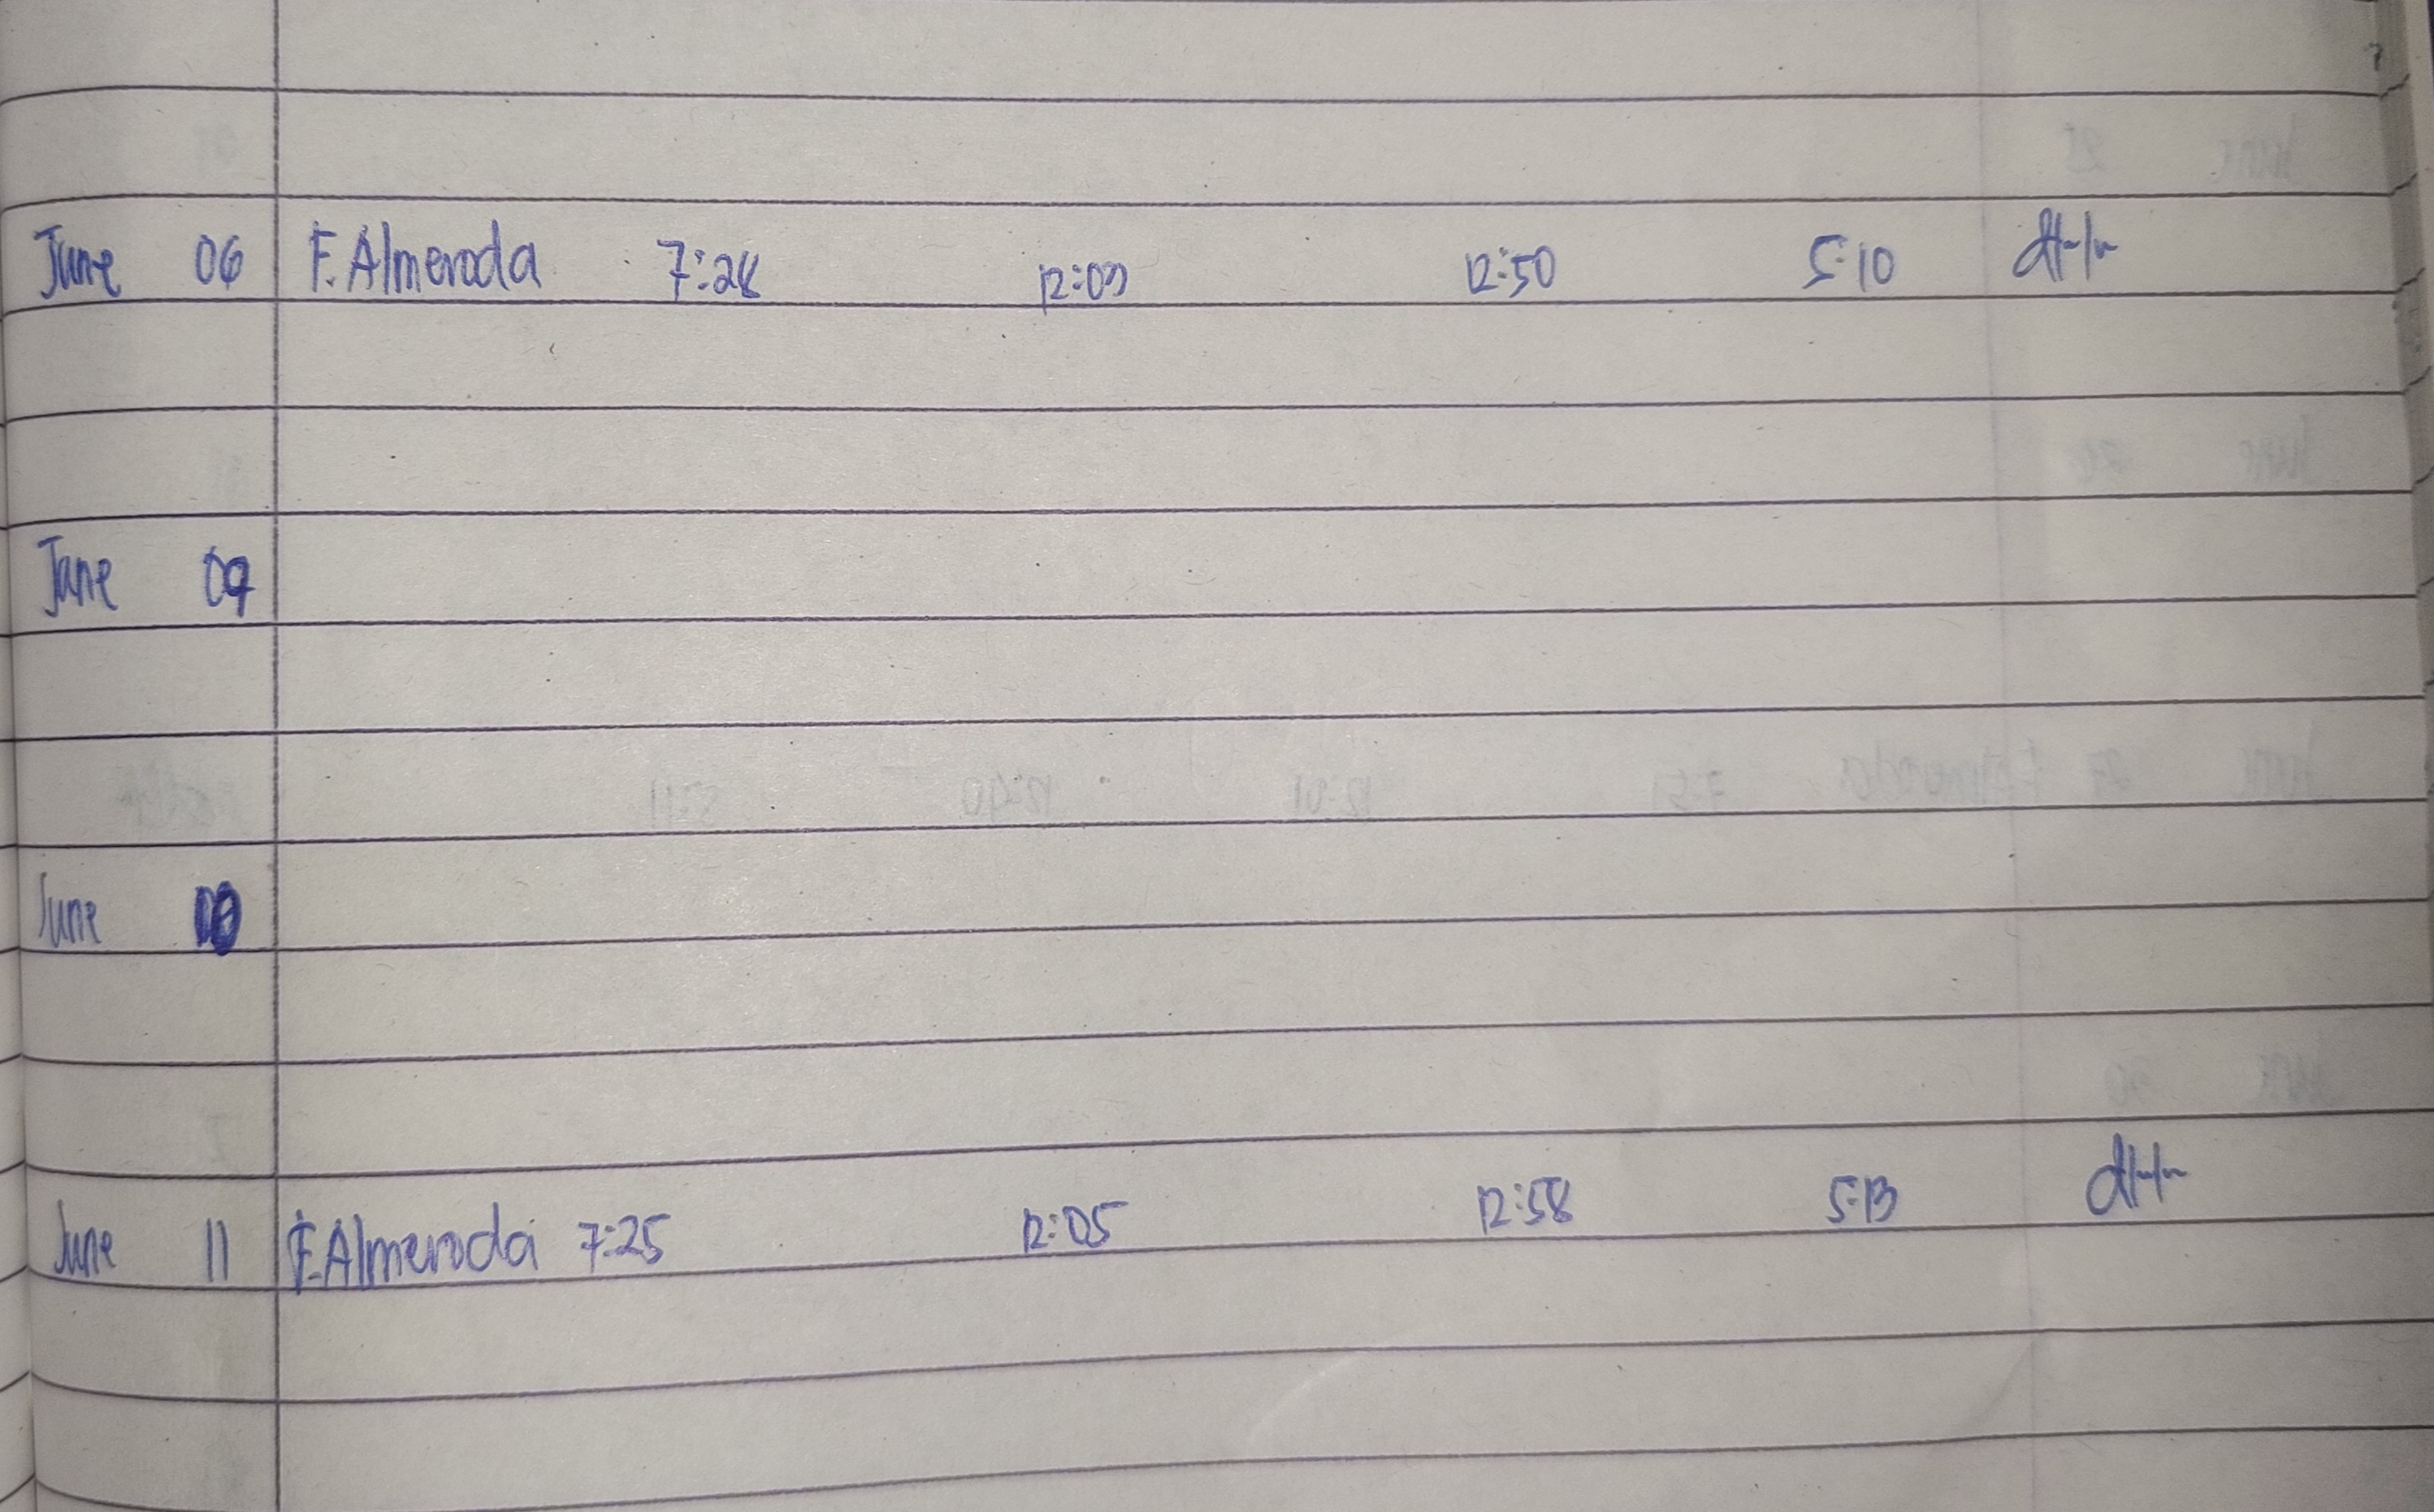 June 06 F. Almeroda 7:28 12:09 12:50 5:10
June 09
June 10
June 11 F. Almeroda 7:25 12:05 12:58 5:13